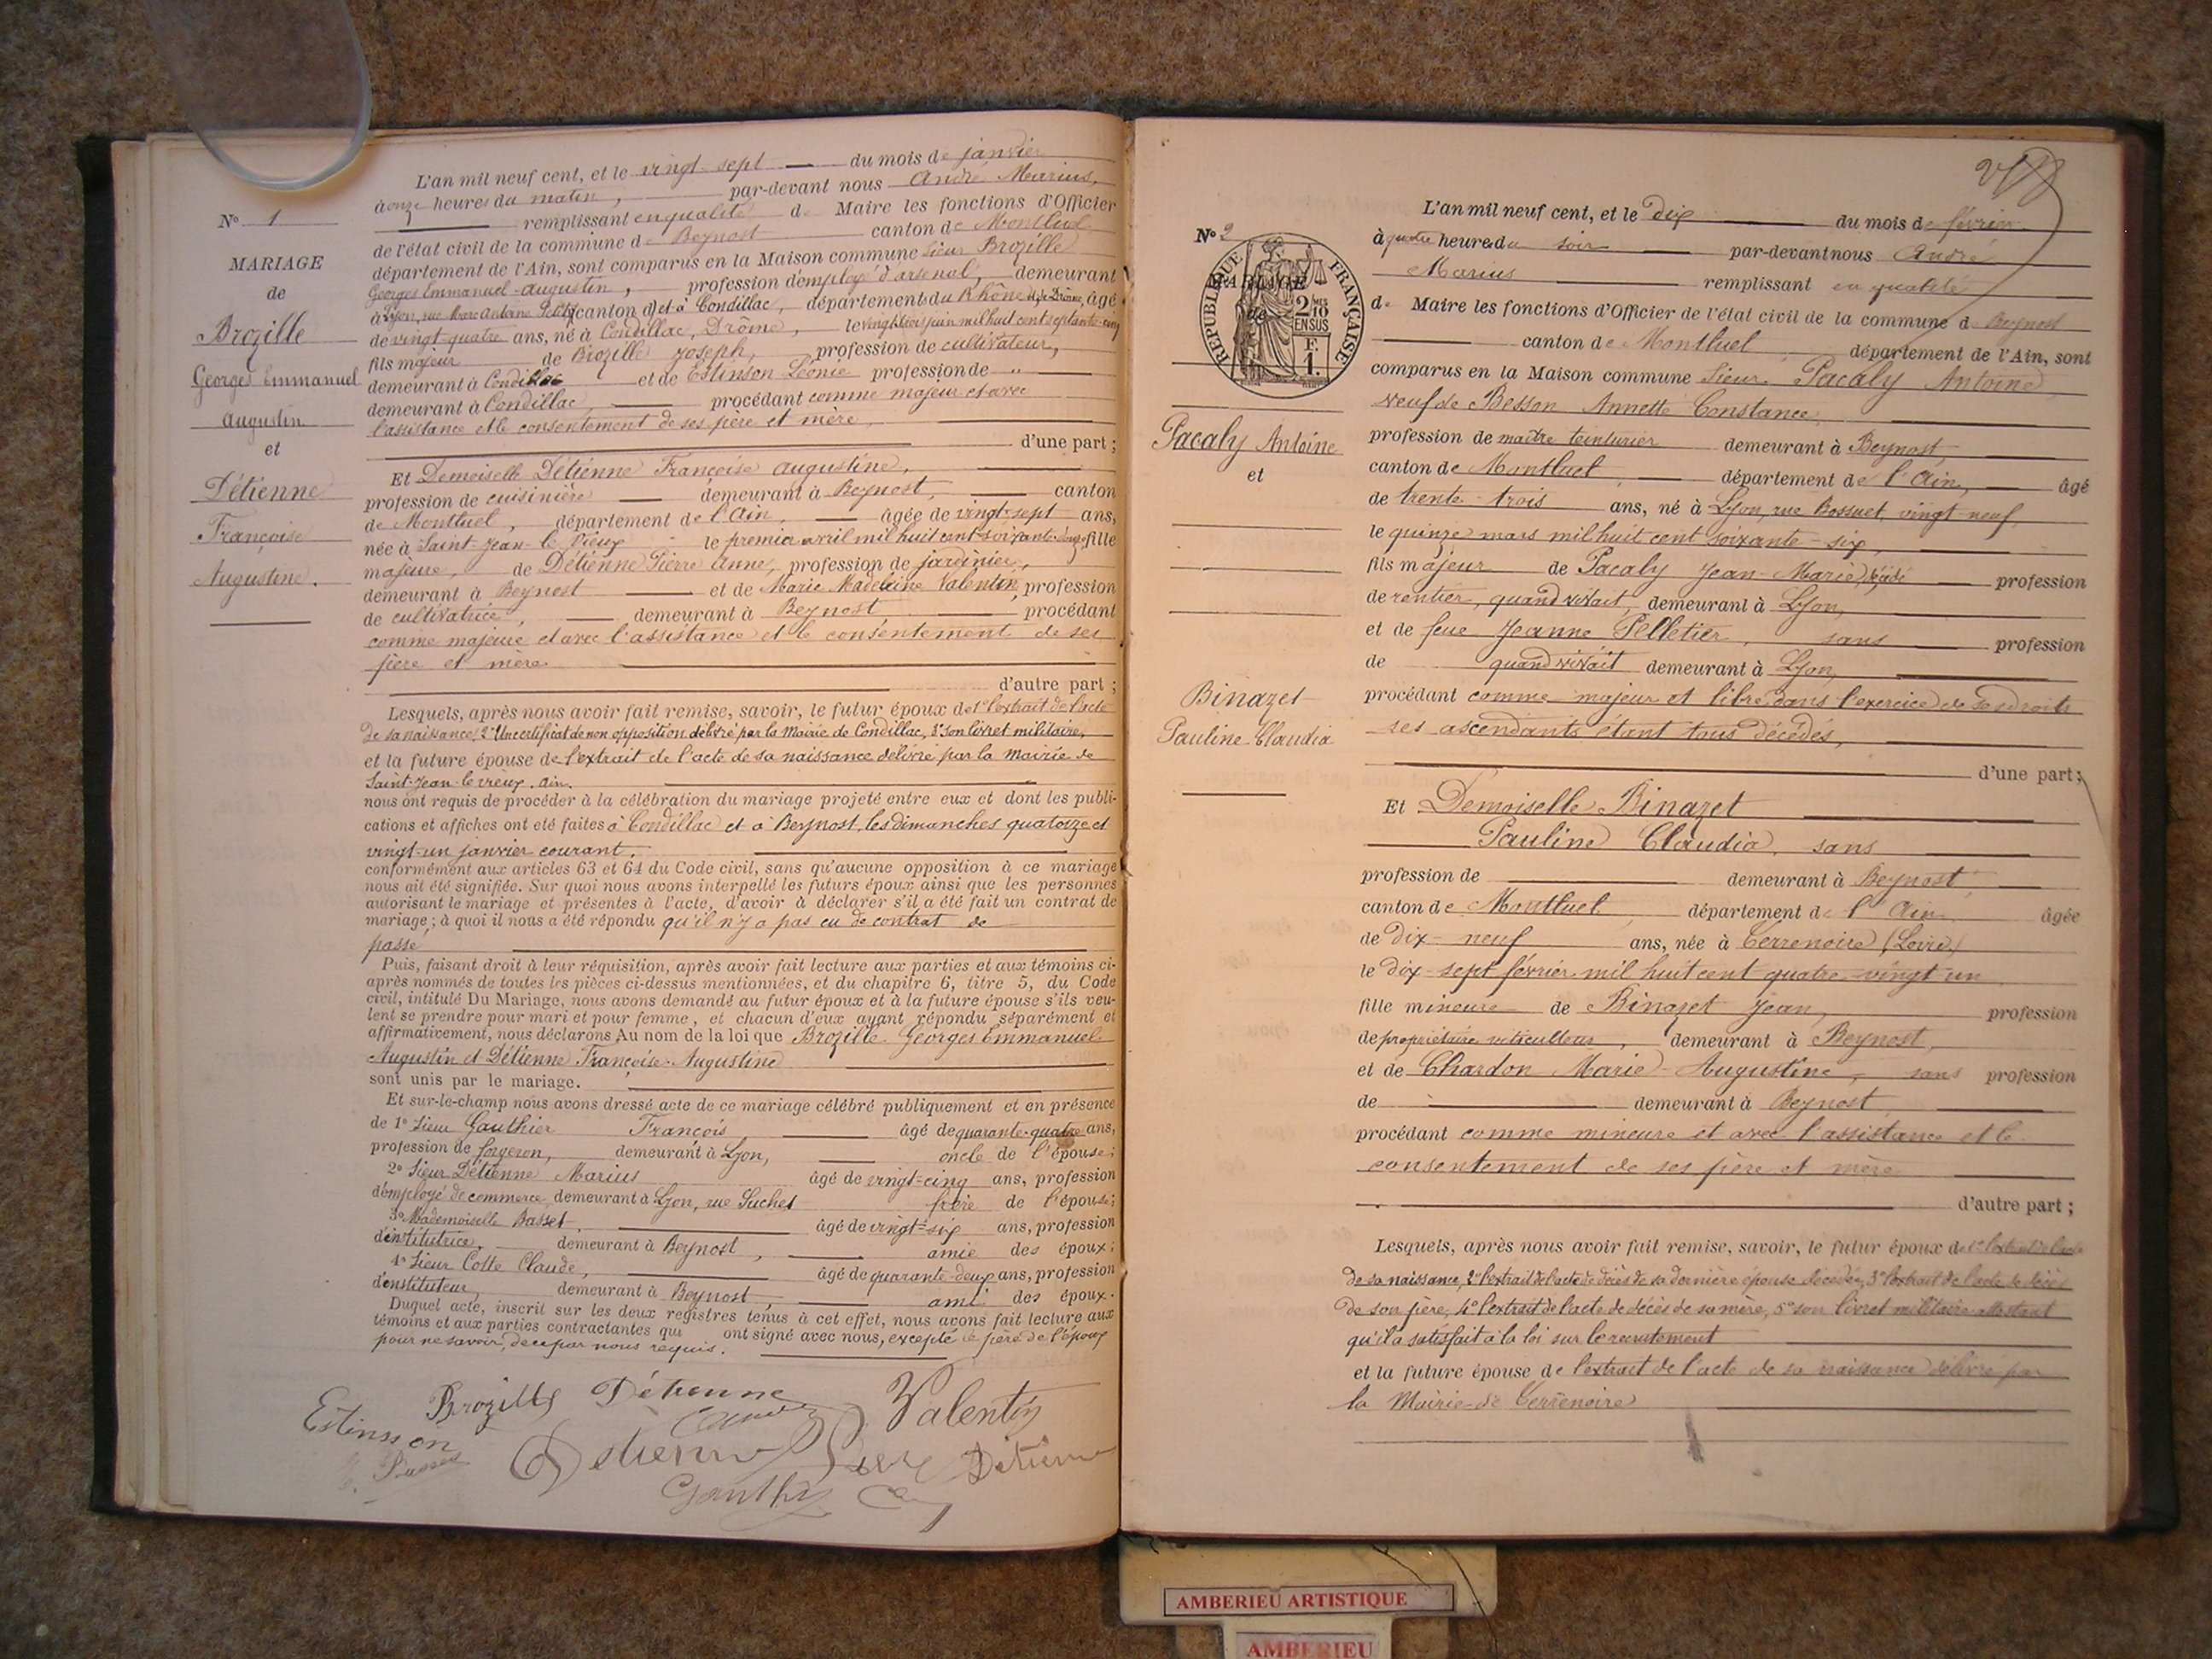 N° 1
MARIAGE
de
Brozille
Georges Emmanuel
Augustin
et
Détienne
Françoise
Augustine.
L'an mil neuf cent, et le vingt-sept du mois de janvier
à onze heures du matin, par-devant nous André Marius,
remplissant en qualité de Maire les fonctions d'Officier
de l'état civil de la commune de Beynost canton de Montluel
département de l'Ain, sont comparus en la Maison commune Sieur Brozille
Georges Emmanuel-Augustin, profession d'employé d'arsenal, demeurant
à Lyon, rue Marc Antoine Petit, canton d et à Condillac, département du Rhône et de Drôme, âgé
de vingt-quatre ans, né à Condillac, Drôme, le vingt trois juin mil huit cent septante-cinq
fils majeur de Brozille Joseph, profession de cultivateur,
demeurant à Condillac et de Estinson Léonie profession de "
demeurant à Condillac, procédant comme majeur et avec
l'assistance et le consentement de ses père et mère,
d'une part ;
Et Demoiselle Détienne Françoise Augustine,
profession de cuisinière demeurant à Beynost, canton
de Montluel, département de l'Ain, âgée de vingt-sept ans,
née à Saint-Jean-le Vieux le premier avril mil huit cent soixante-douze, fille
majeure, de Détienne Pierre Anne, profession de jardinier,
demeurant à Beynost et de Marie Madeleine Valentin, profession
de cultivatrice, demeurant à Beynost, procédant
comme majeure et avec l'assistance et le consentement de ses
père et mère
d'autre part ;
Lesquels, après nous avoir fait remise, savoir, le futur époux de 1° l'extrait de l'acte
de sa naissance, 2° Un certificat de non opposition délivré par la Mairie de Condillac, 3° son livret militaire,
et la future épouse de l'extrait de l'acte de sa naissance délivré par la Mairie de
Saint-Jean-le vieux. Ain.
nous ont requis de procéder à la célébration du mariage projeté entre eux et dont les publi-
cations et affiches ont été faites à Condillac et à Beynost, les dimanches quatorze et
vingt-un janvier courant,
conformément aux articles 63 et 64 du Code civil, sans qu'aucune opposition à ce mariage
nous ait été signifiée. Sur quoi nous avons interpellé les futurs époux ainsi que les personnes
autorisant le mariage et présentes à l'acte, d'avoir à déclarer s'il a été fait un contrat de
mariage ; à quoi il nous a été répondu qu'il n'y a pas eu de contrat de
passé
Puis, faisant droit à leur réquisition, après avoir fait lecture aux parties et aux témoins ci-
après nommés de toutes les pièces ci-dessus mentionnées, et du chapitre 6, titre 5, du Code
civil, intitulé Du Mariage, nous avons demandé au futur époux et à la future épouse s'ils veu-
lent se prendre pour mari et pour femme, et chacun d'eux ayant répondu séparément et
affirmativement, nous déclarons Au nom de la loi que Brozille Georges Emmanuel
Augustin et Détienne Françoise-Augustine
sont unis par le mariage.
Et sur-le-champ nous avons dressé acte de ce mariage célébré publiquement et en présence
de 1° Sieur Gauthier François âgé de quarante-quatre ans,
profession de forgeron, demeurant à Lyon, oncle de l'épouse ;
2° Sieur Détienne Marius âgé de vingt-cinq ans, profession
d'employé de commerce, demeurant à Lyon, rue Suchet frère de l'épouse ;
3° Mademoiselle Basset âgé de vingt-six ans, profession
d'institutrice, demeurant à Beynost, amie des époux ;
4° Sieur Cotte Claude, âgé de quarante-deux ans, profession
d'instituteur, demeurant à Beynost, ami des époux.
Duquel acte, inscrit sur les deux registres tenus à cet effet, nous avons fait lecture aux
témoins et aux parties contractantes qui ont signé avec nous, excepté le père de l'époux
pour ne savoir, de ce par nous requis.
Brozille Détienne Valentin
Estinson
Détienne Détienne
Gauthier
N° 2
MARIAGE
de
RÉPUBLIQUE FRANÇAISE
2/10
EN SUS
F.
1.
Pacaly Antoine
et
Binazet
Pauline Claudia
L'an mil neuf cent, et le dix du mois de février
à quatre heures du soir par-devant nous André
Marius remplissant en qualité
de Maire les fonctions d'Officier de l'état civil de la commune de Beynost
canton de Montluel département de l'Ain, sont
comparus en la Maison commune Sieur Pacaly Antoine
veuf de Besson Annette Constance,
profession de maître teinturier demeurant à Beynost,
canton de Montluel, département de l'Ain, âgé
de trente-trois ans, né à Lyon, rue Bossuet, vingt-neuf,
le quinze mars mil huit cent soixante-six,
fils majeur de Pacaly Jean-Marie, décédé profession
de rentier, quand vivait, demeurant à Lyon,
et de feue Jeanne Pelletier, sans profession
de quand vivait demeurant à Lyon,
procédant comme majeur et libre dans l'exercice de ses droits
ses ascendants étant tous décédés,
d'une part ;
Et Demoiselle Binazet
Pauline Claudia, sans
profession de demeurant à Beynost,
canton de Montluel, département de l'Ain âgée
de dix-neuf ans, née à Terrenoire (Loire)
le dix-sept février mil huit cent quatre-vingt un
fille mineure de Binazet Jean, profession
de propriétaire viticulteur, demeurant à Beynost,
et de Chardon Marie-Augustine, sans profession
de demeurant à Beynost
procédant comme mineure et avec l'assistance et le
consentement de ses père et mère
d'autre part ;
Lesquels, après nous avoir fait remise, savoir, le futur époux de 1° l'extrait de l'acte
de sa naissance, 2° l'extrait de l'acte de décès de sa dernière épouse décédée, 3° l'extrait de l'acte de décès
de son père, 4° l'extrait de l'acte de décès de sa mère, 5° son livret militaire attestant
qu'il a satisfait à la loi sur le recrutement
et la future épouse de l'extrait de l'acte de sa naissance délivré par
la Mairie de Terrenoire
AMBERIEU ARTISTIQUE
AMBERIEU